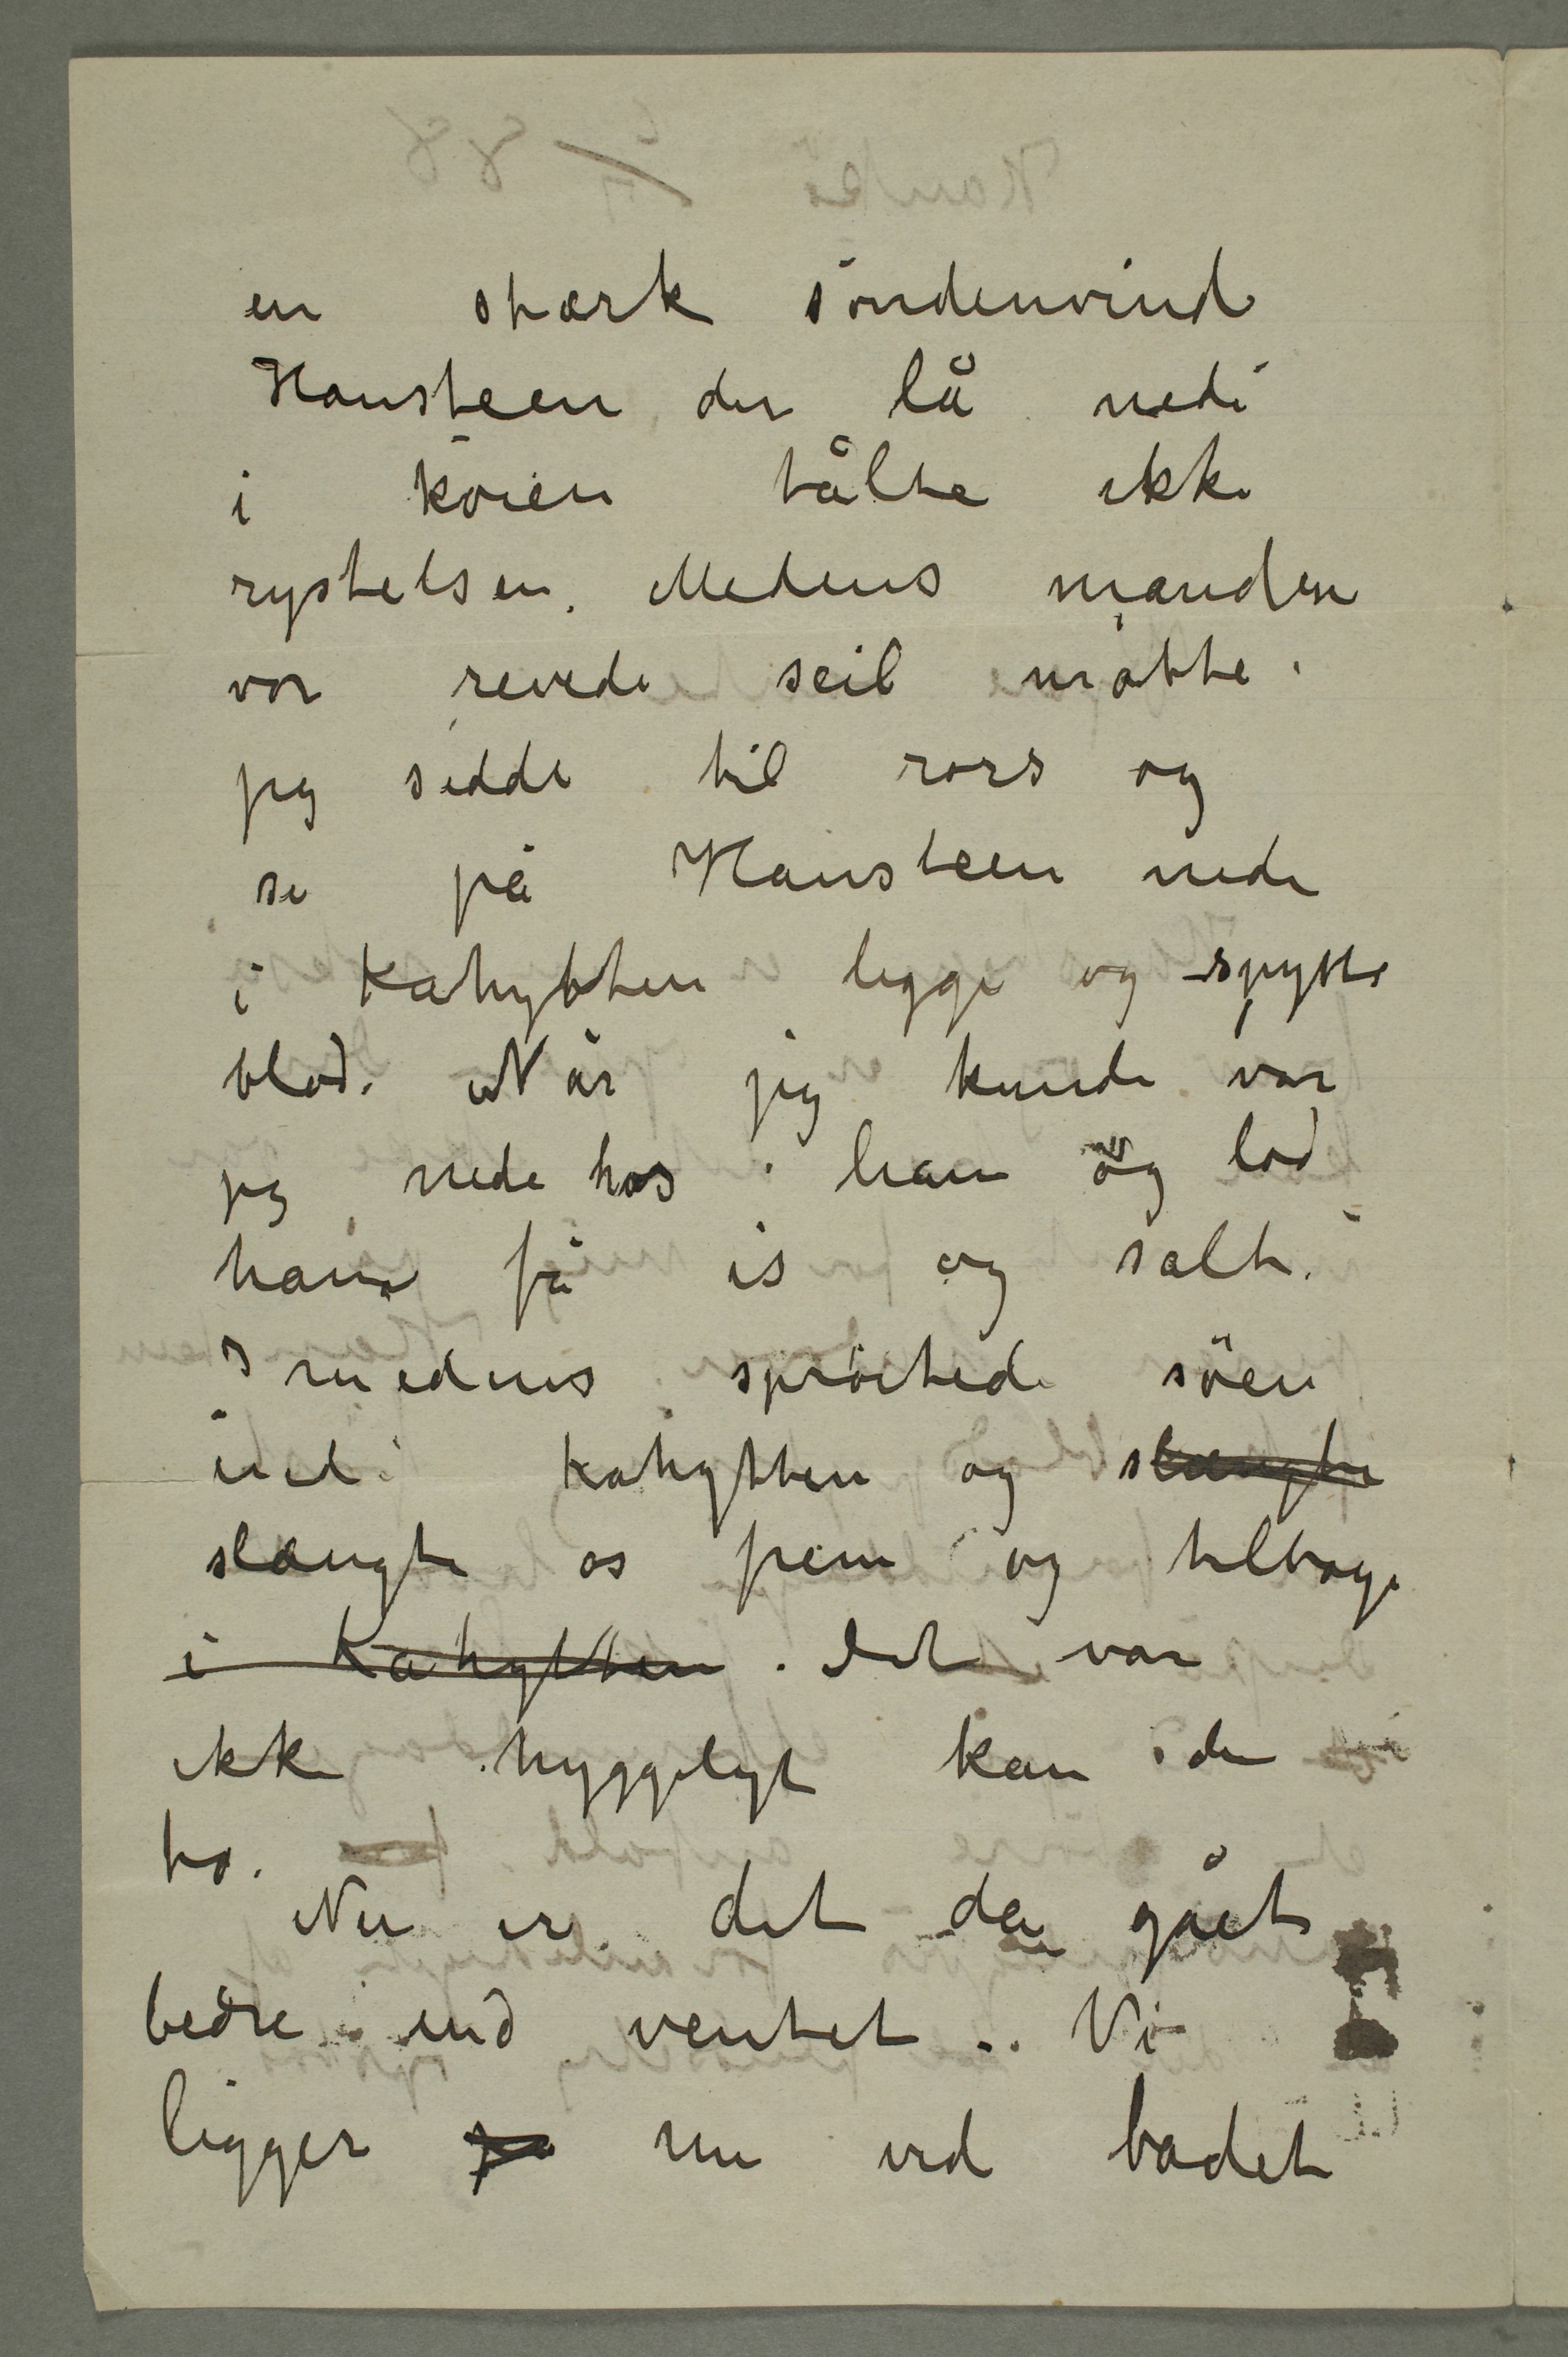 en stærk söndenvind
Hansteen der lå nede
i köien tålte ikke
rystelsen. Medens manden
vor revede seil måtte
jeg sidde til rors og
se på Hansteen nede
i Kahytten ligge og spytte
blod. Når jeg kunde var
jeg nede hos ham og lod
ham få is og salt.
Imedens spröitede söen
ind i kahytten og slængte
slængte os frem og tilbage
i Kahytten. Det var
ikke hyggeligt kan du
tro.
Nu er det da gået
bedre end ventet.. Vi
ligger på nu ved badet